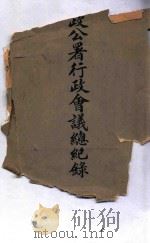 政公署行政會議總紀錄